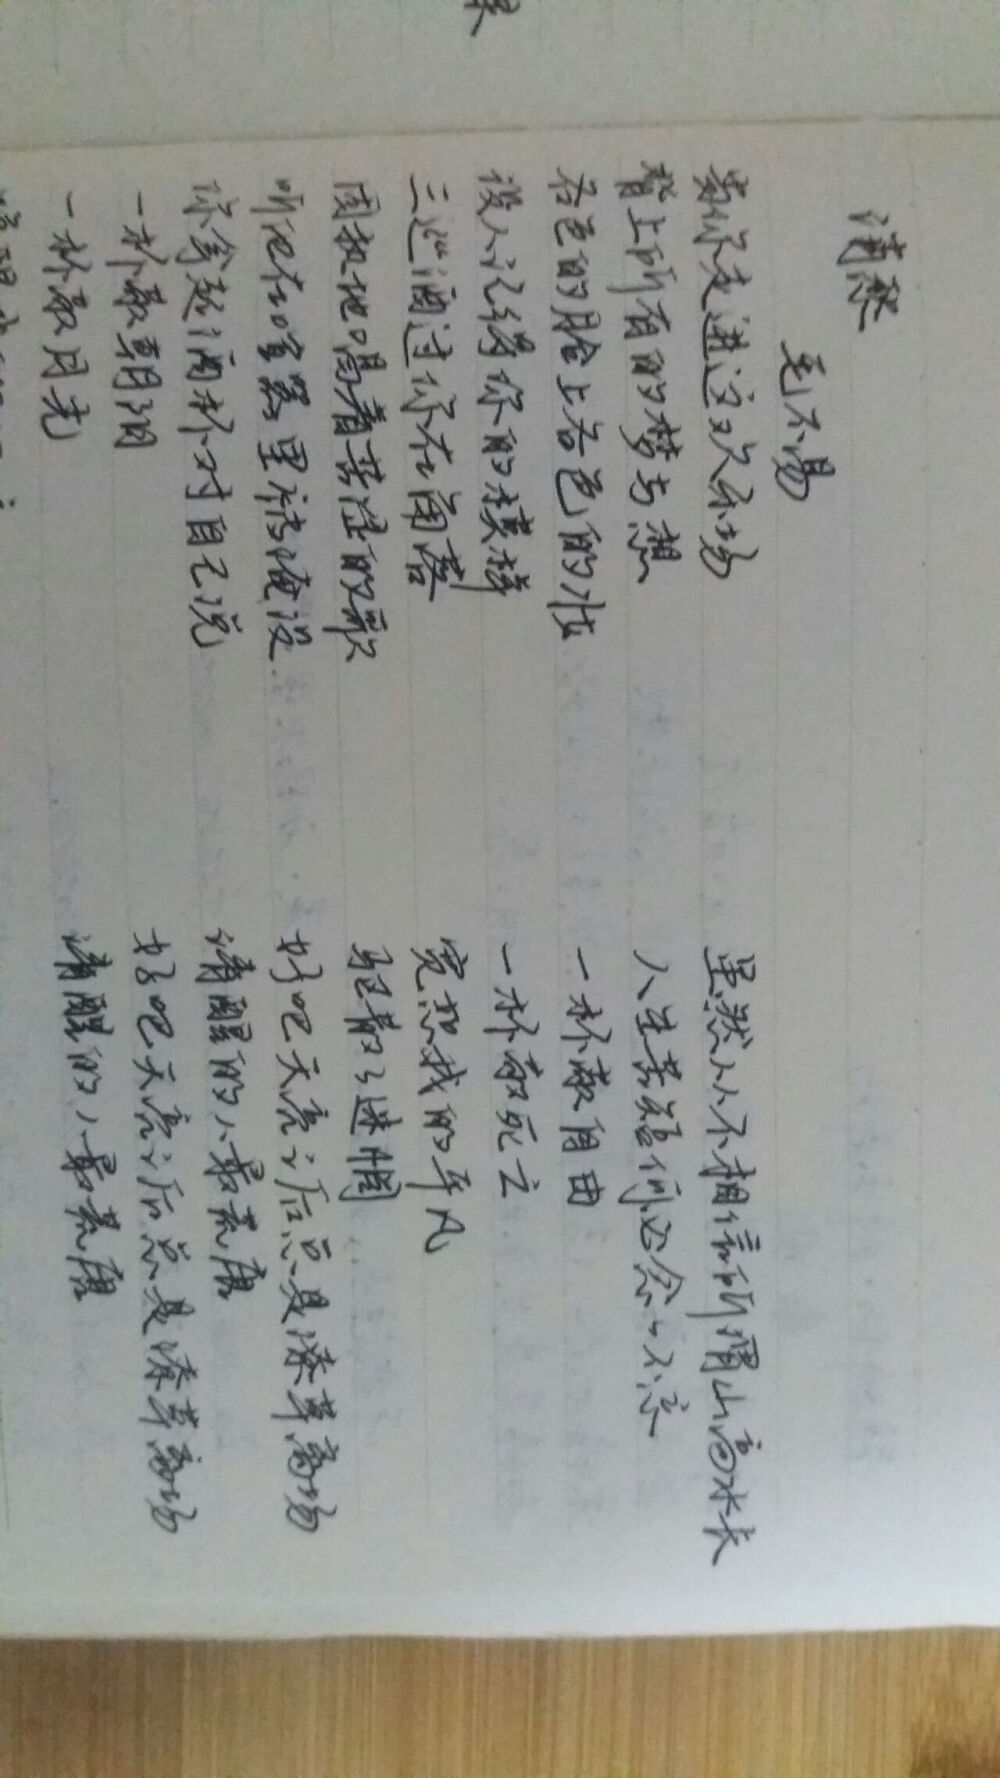 消愁
毛不易
当你走进这欢乐场
背上所有的梦与想
各色的脸上各色的妆
没人记得你的模样
三巡酒过你在角落
固执地唱着苦涩的歌
听他在喧嚣里被淹没
你拿起酒杯对自己说
一杯敬朝阳
一杯敬月光
虽然从不相信所谓山高水长
人生苦短何必念念不忘
一杯敬自由
一杯敬死亡
宽恕我的平凡
驱散了迷惘
好吧天亮之后总是潦草离场
清醒的人最荒唐
好吧天亮之后总是潦草离场
清醒的人最荒唐